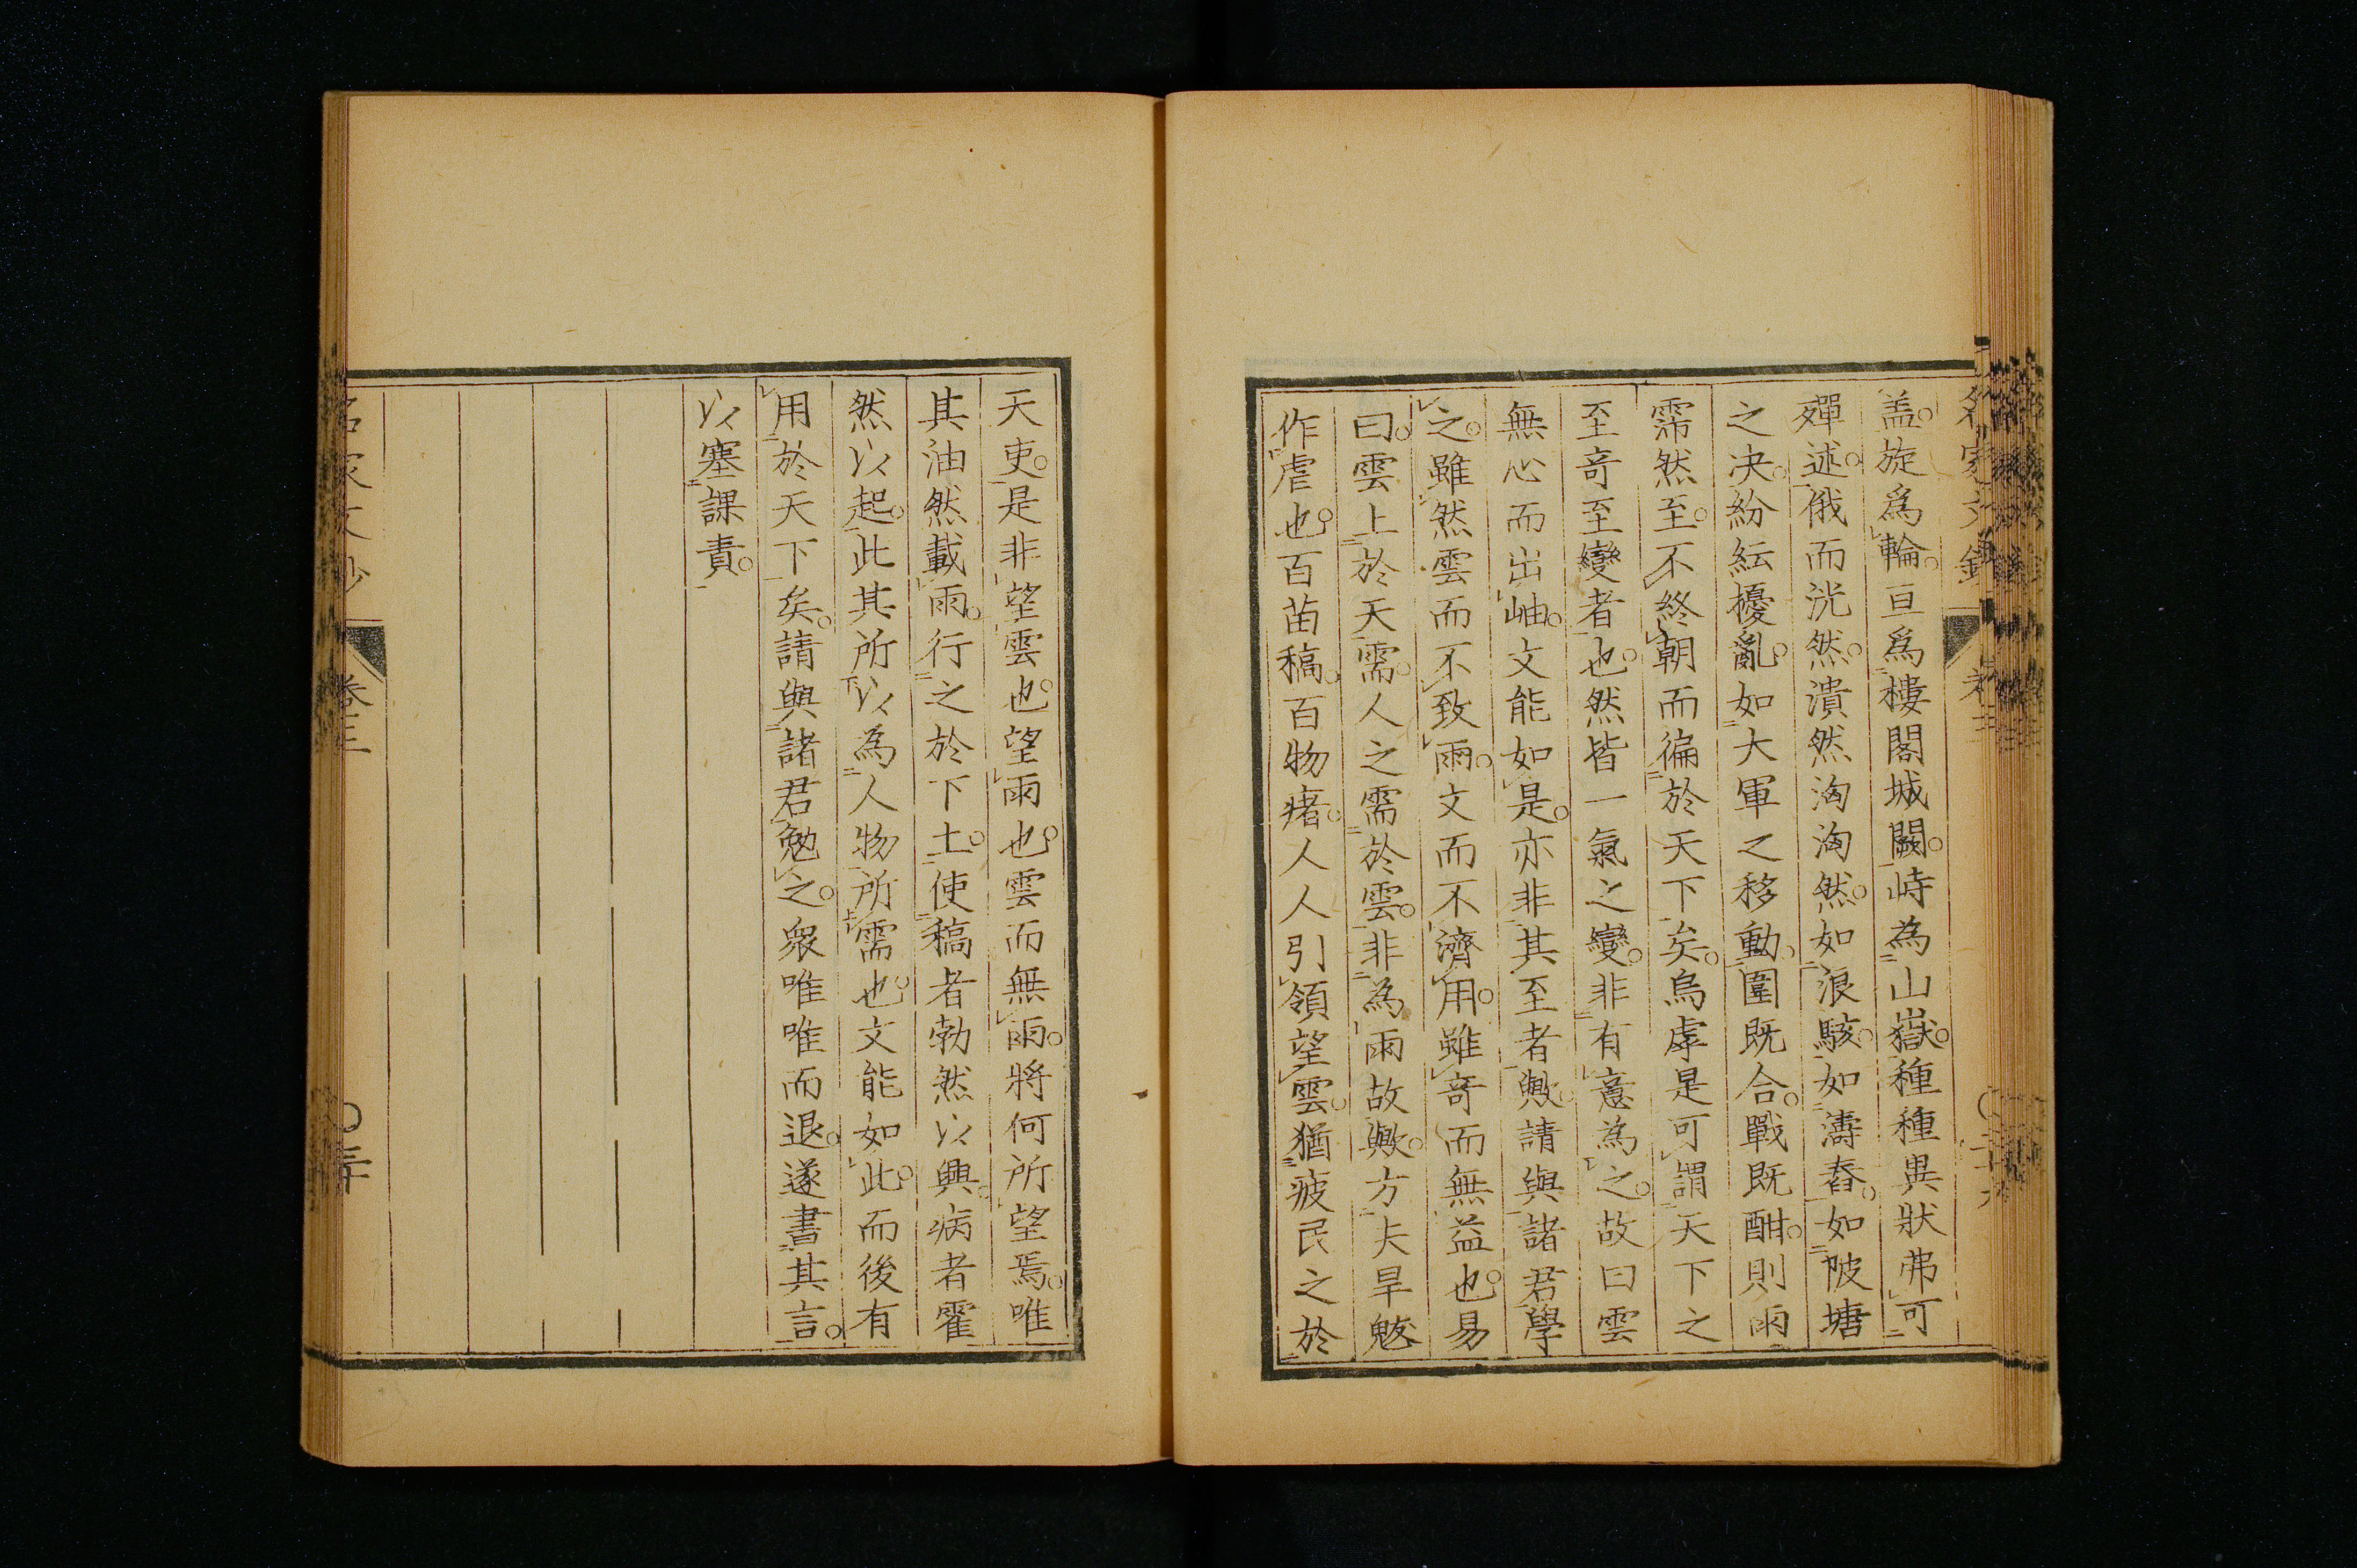 盖。旋爲輪。亘爲樓閣城闕。峙為山嶽。種種異狀弗可
殫述。俄而洸然。潰然洶洶然。如浪駭。如濤舂。如陂塘
之决。紛紜擾亂。如大軍之移動。圍既合。戰既酣。則雨
霈然至。不終朝而徧於天下矣。烏虖是可謂天下之
至奇至變者也。然皆一氣之變。非有意為之。故曰雲
無心而出岫。文能如是。亦非其至者歟。請與諸君學
之。雖然雲而不致雨。文而不濟用。雖奇而無益也。易
曰。雲上於天需。人之需於雲。非為雨故歟。方夫旱魃
作虐也。百苗稿。百物瘏。人人引領望雲。猶疲民之於
天吏。是非望雲也。望雨也。雲而無雨。將何所望焉。唯
其油然載雨。行之於下土。使稿者勃然以興。病者霍
然以起。此其所以為人物所需也。文能如此。而後有
用於天下矣。請與諸君勉之。衆唯唯而退。遂書其言。
以塞課責。
卷三